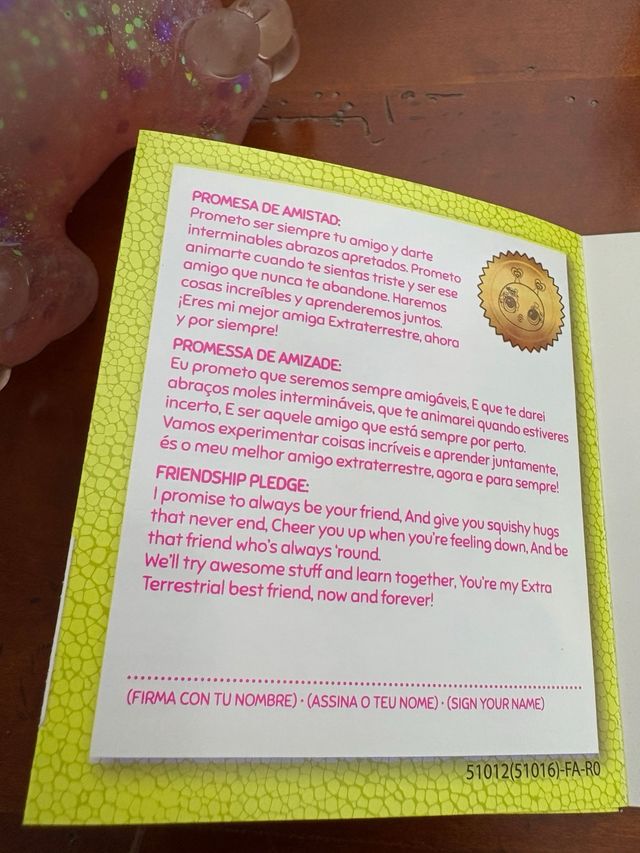 PROMESA DE AMISTAD:
Prometo ser siempre tu amigo y darte
interminables abrazos apretados. Prometo
animarte cuando te sientas triste y ser ese
amigo que nunca te abandone. Haremos
cosas increíbles y aprenderemos juntos.
¡Eres mi mejor amiga Extraterrestre, ahora
y por siempre!
PROMESSA DE AMIZADE:
Eu prometo que seremos sempre amigáveis, E que te darei
abraços moles intermináveis, que te animarei quando estiveres
incerto, E ser aquele amigo que está sempre por perto.
Vamos experimentar coisas incríveis e aprender juntamente,
és o meu melhor amigo extraterrestre, agora e para sempre!
FRIENDSHIP PLEDGE:
I promise to always be your friend, And give you squishy hugs
that never end, Cheer you up when you're feeling down, And be
that friend who's always 'round.
We'll try awesome stuff and learn together, You're my Extra
Terrestrial best friend, now and forever!
(FIRMA CON TU NOMBRE) · (ASSINA O TEU NOME) · (SIGN YOUR NAME)
51012(51016)-FA-R0